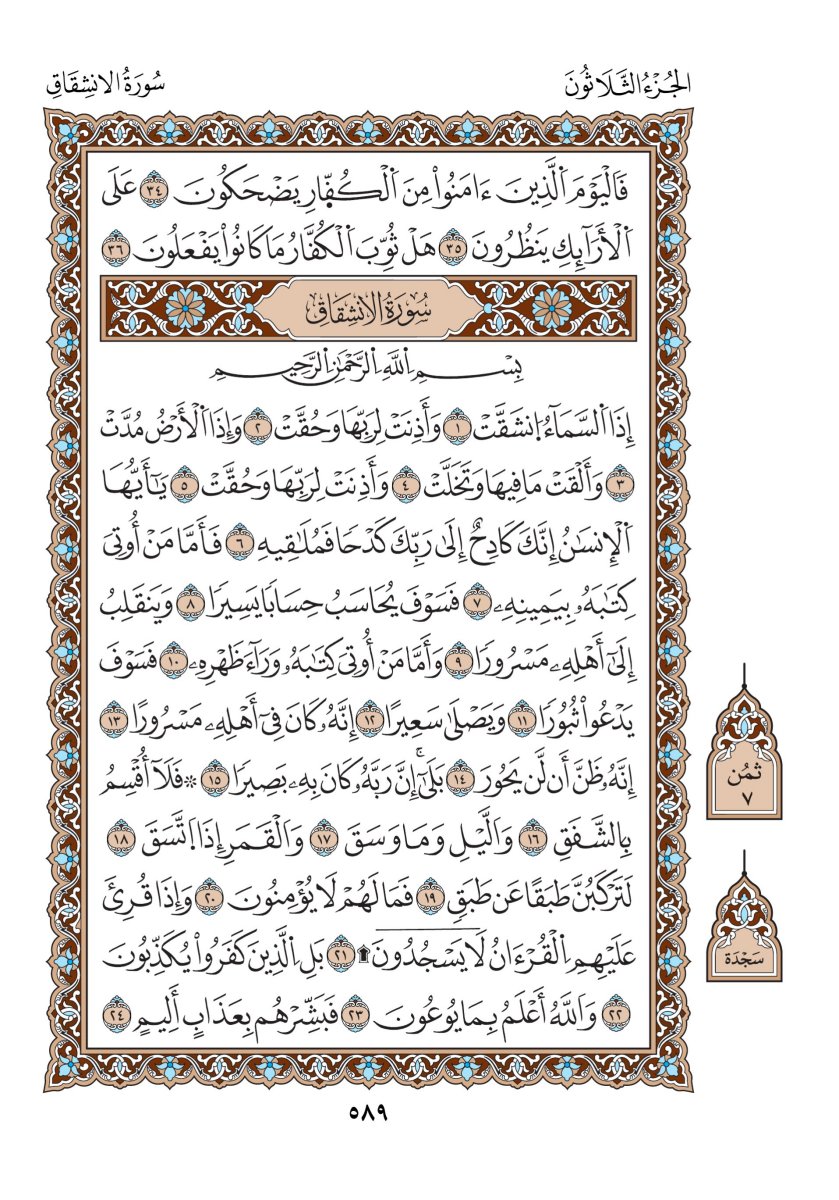 الجُزْءُ الثَّلَاثُونَ
سُورَةُ الانشِقَاقِ
فَالْيَوْمَ اَ۬لذِينَ ءَامَنُواْ مِنَ اَ۬لْكُفّ۪ارِ يَضْحَكُونَ ٣٤ عَلَى
اَ۬لْأَرَآئِكِ يَنظُرُونَ ٣٥ هَلْ ثُوِّبَ اَ۬لْكُفَّارُ مَا كَانُواْ يَفْعَلُونَ ٣٦
سُورَةُ الانشِقَاقِ
بِسْمِ اِ۬للَّهِ اِ۬لرَّحْمَٰنِ اِ۬لرَّحِيمِ
إِذَا اَ۬لسَّمَآءُ اُ۪نشَقَّتْ ١ وَأَذِنَتْ لِرَبِّهَا وَحُقَّتْ ٢ وَإِذَا اَ۬لْأَرْضُ مُدَّتْ
٣ وَأَلْقَتْ مَا فِيهَا وَتَخَلَّتْ ٤ وَأَذِنَتْ لِرَبِّهَا وَحُقَّتْ ٥ يَٰٓأَيُّهَا
اَ۬لْإِنسَٰنُ إِنَّكَ كَادِحٌ إِلَىٰ رَبِّكَ كَدْحًا فَمُلَٰقِيهِ ٦ فَأَمَّا مَنْ أُوتِيَ
كِتَٰبَهُۥ بِيَمِينِهِۦ ٧ فَسَوْفَ يُحَاسَبُ حِسَابًا يَسِيرًا ٨ وَيَنقَلِبُ
إِلَىٰٓ أَهْلِهِۦ مَسْرُورًا ٩ وَأَمَّا مَنْ أُوتِيَ كِتَٰبَهُۥ وَرَآءَ ظَهْرِهِۦ ١٠ فَسَوْفَ
يَدْعُواْ ثُبُورًا ١١ وَيَصْلَىٰ سَعِيرًا ١٢ إِنَّهُۥ كَانَ فِيٓ أَهْلِهِۦ مَسْرُورًا ١٣
إِنَّهُۥ ظَنَّ أَن لَّن يَحُورَ ١٤ بَلَىٰٓۚ إِنَّ رَبَّهُۥ كَانَ بِهِۦ بَصِيرًا ١٥ ۞ فَلَآ أُقْسِمُ
بِالشَّفَقِ ١٦ وَاَليْلِ وَمَا وَسَقَ ١٧ وَالْقَمَرِ إِذَا اَ۪تَّسَقَ ١٨
لَتَرْكَبُنَّ طَبَقًا عَن طَبَقٍ ١٩ فَمَا لَهُمْ لَا يُؤْمِنُونَ ٢٠ وَإِذَا قُرِئَ
عَلَيْهِمِ اِ۬لْقُرْءَانُ لَا يَسْجُدُونَ۩ ٢١ بَلِ اِ۬لذِينَ كَفَرُواْ يُكَذِّبُونَ
٢٢ وَاللَّهُ أَعْلَمُ بِمَا يُوعُونَ ٢٣ فَبَشِّرْهُم بِعَذَابٍ أَلِيمٍ ٢٤
ثُمُن
٧
سَجْدَة
٥٨٩